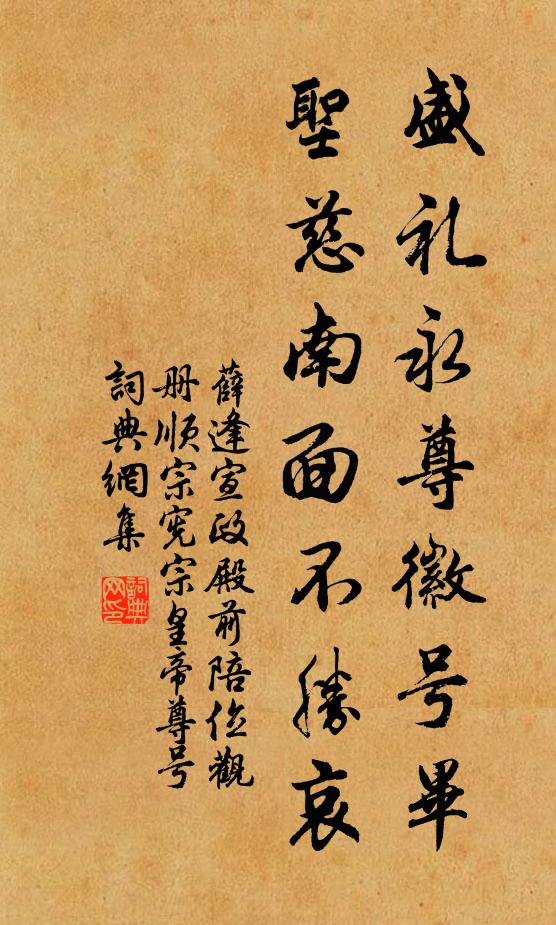 盛礼永尊徽号畢
聖慈南面不勝哀
薛逢宣政殿前陪位觀
册順宗宪宗皇帝尊号
詞典網集
詞典
网印